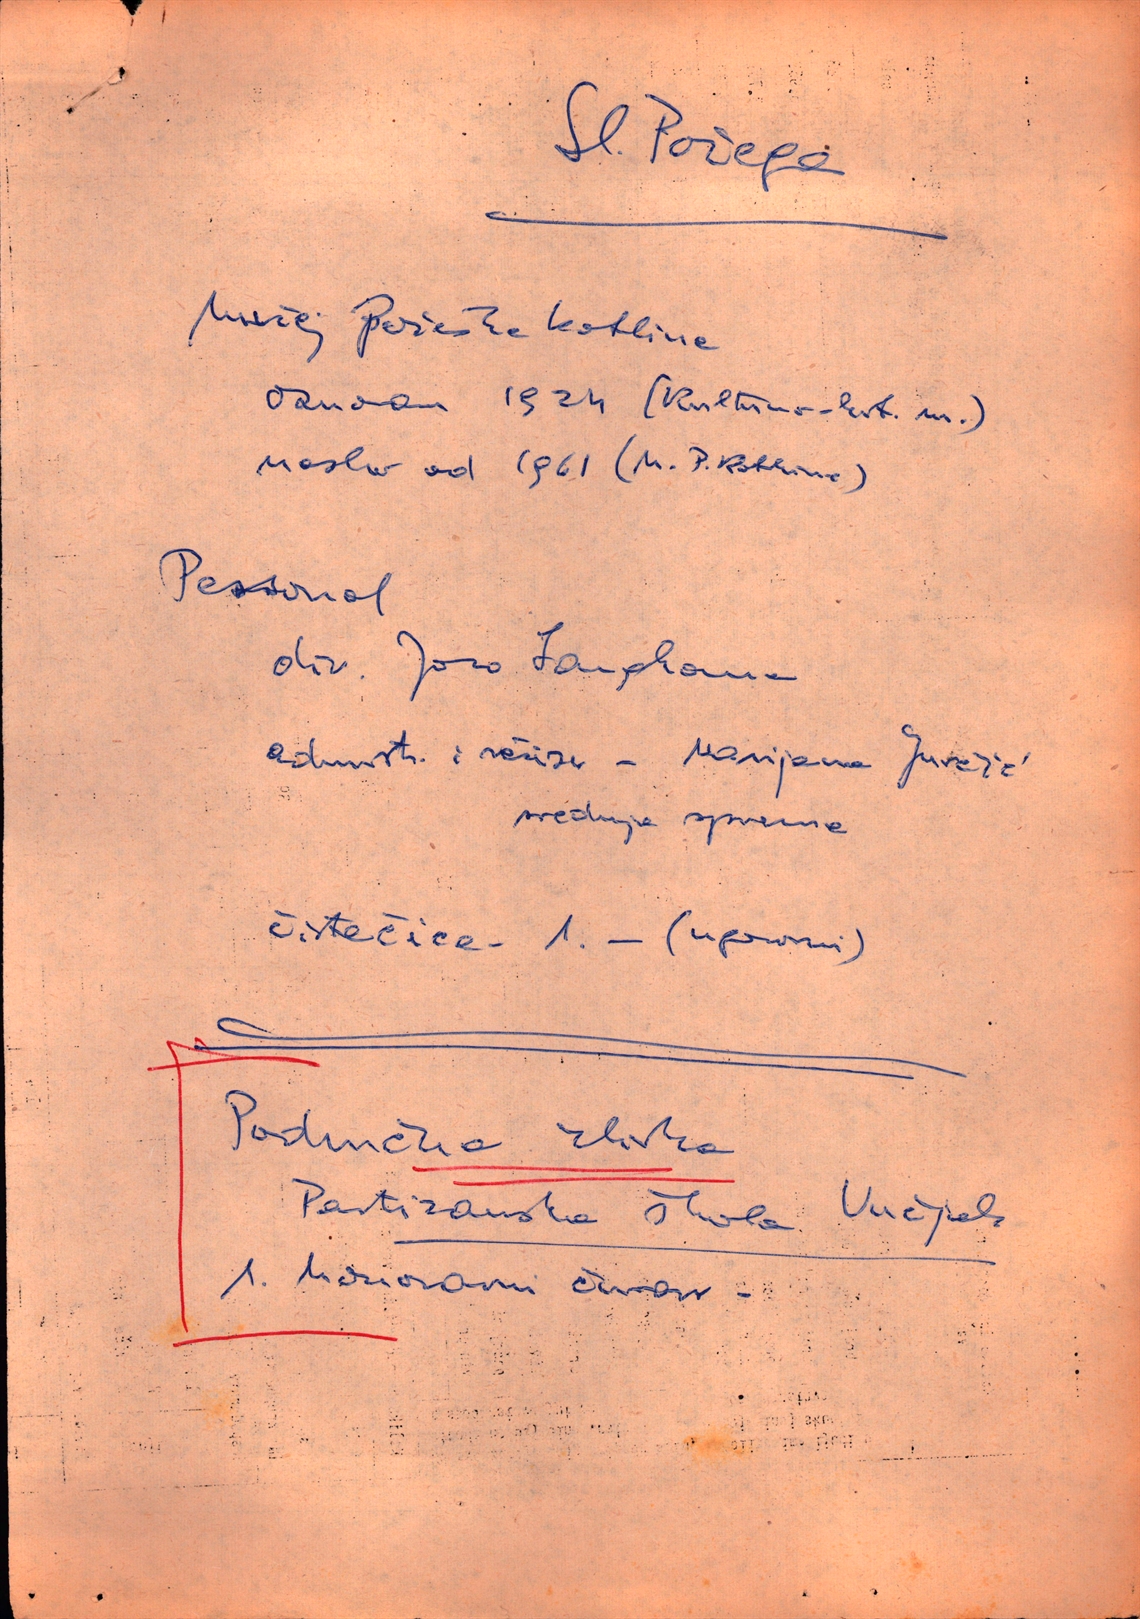 Sl. Požega
Muzej Požeške kotline
osnovan 1924 (Kulturno-hist. m.)
naslov od 1961 (M. P. Kotline)
Personal
dir. Jozo
administr. i - Marijana
srednja sprema
čistačica - 1. - (ugovorni)
Područna zbirka
Partizanska škola Vučjak
1. honorarni čuvar -